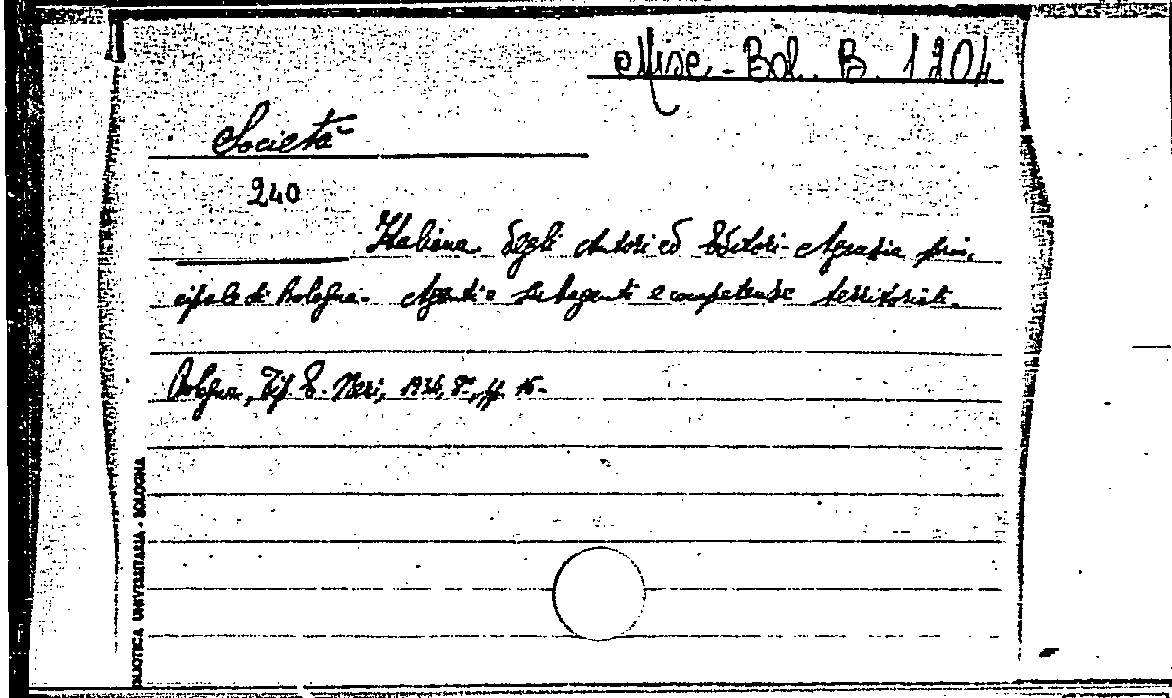 Misc. Bol. B. 1204
Società
240
Italiana degli Autori ed Editori - Agenzia prin-
cipale di Bologna - Agenti e subagenti e competenze territoriali.
Bologna, Tip. E. Neri, 8°, pp. 15-
BIBLIOTECA UNIVERSITARIA - BOLOGNA